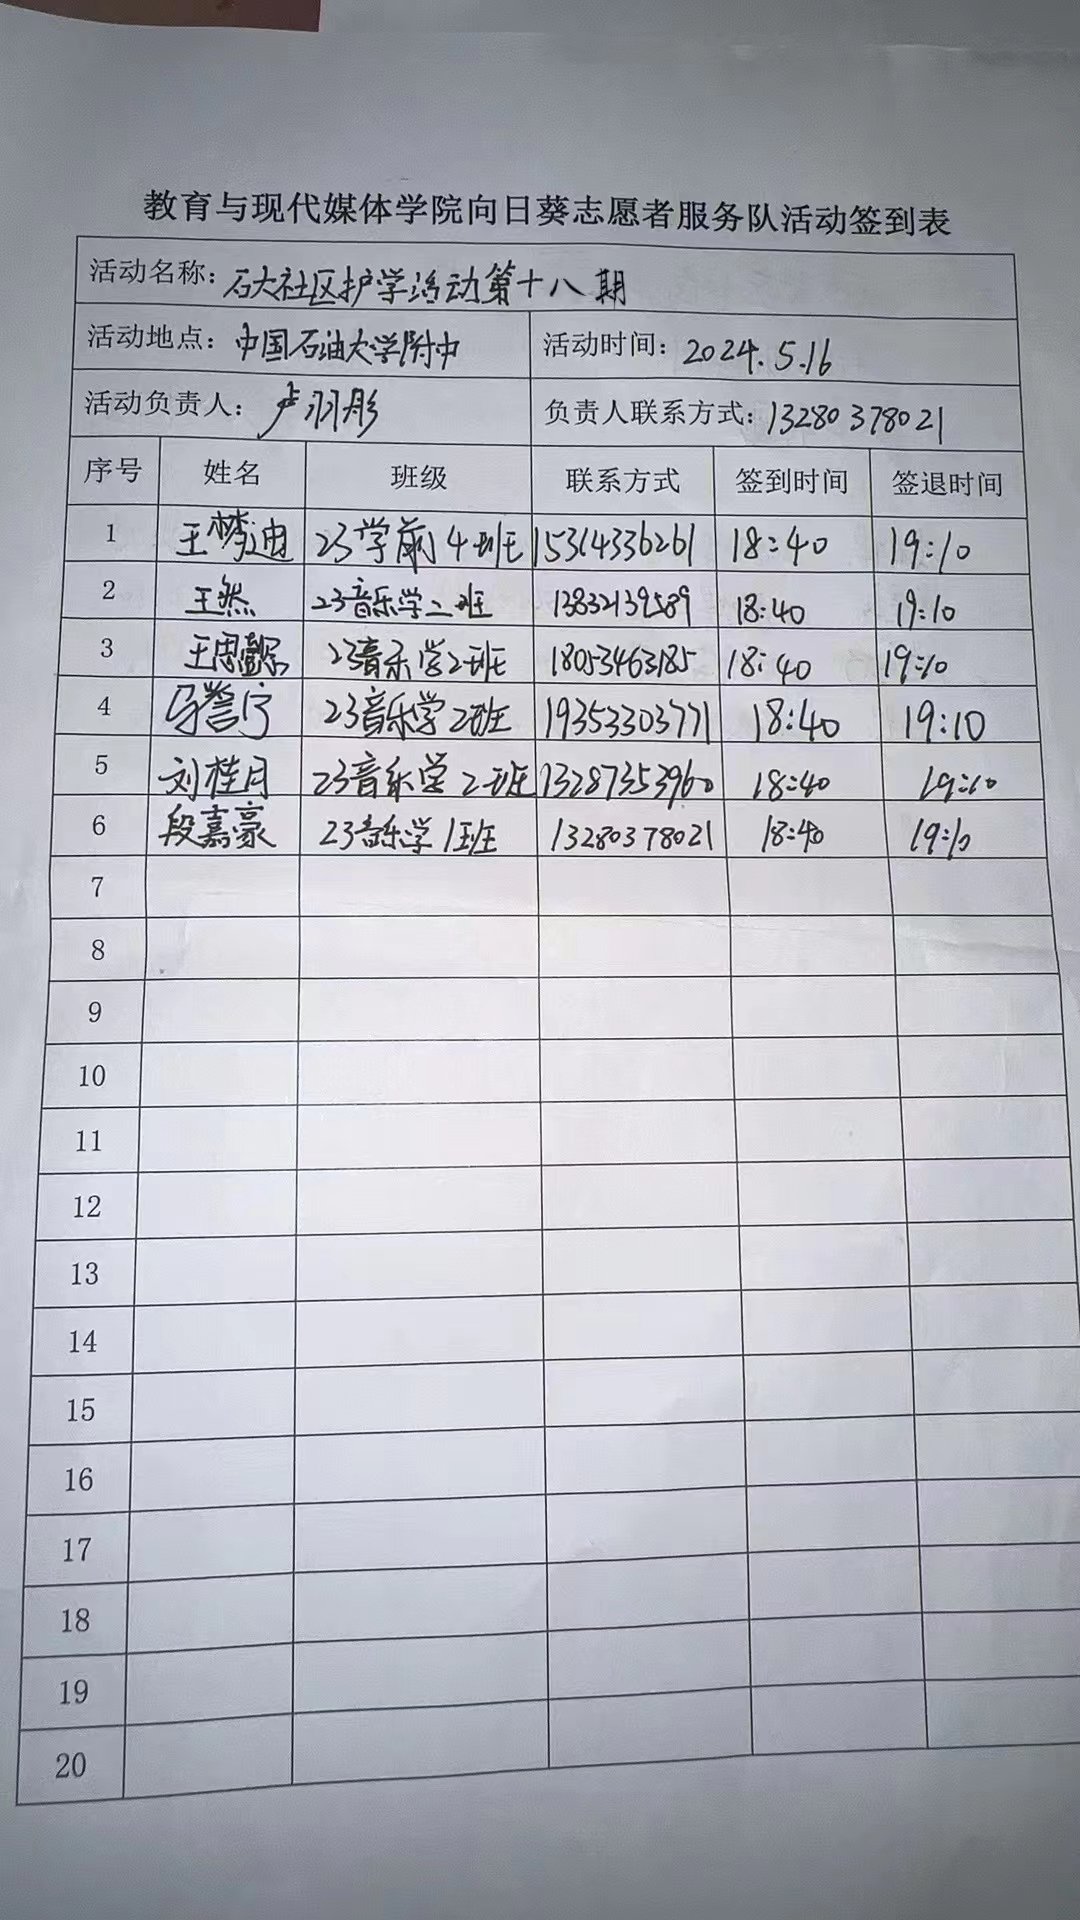 教育与现代媒体学院向日葵志愿者服务队活动签到表
活动名称：石大社区护学活动第十八期
活动地点：中国石油大学附中 活动时间：2024.5.16
活动负责人：卢羽彤 负责人联系方式：13280378021
序号 姓名 班级 联系方式 签到时间 签退时间
1 王梦迪 23学前4班 15314336261 18:40 19:10
2 王然 23音乐学二班 13832139589 18:40 19:10
3 王思懿 23音乐学2班 18053463185 18:40 19:10
4 马誉宁 23音乐学2班 19353303771 18:40 19:10
5 刘桂月 23音乐学2班 13287353960 18:40 19:10
6 段嘉豪 23音乐学1班 13280378021 18:40 19:10
7
8
9
10
11
12
13
14
15
16
17
18
19
20